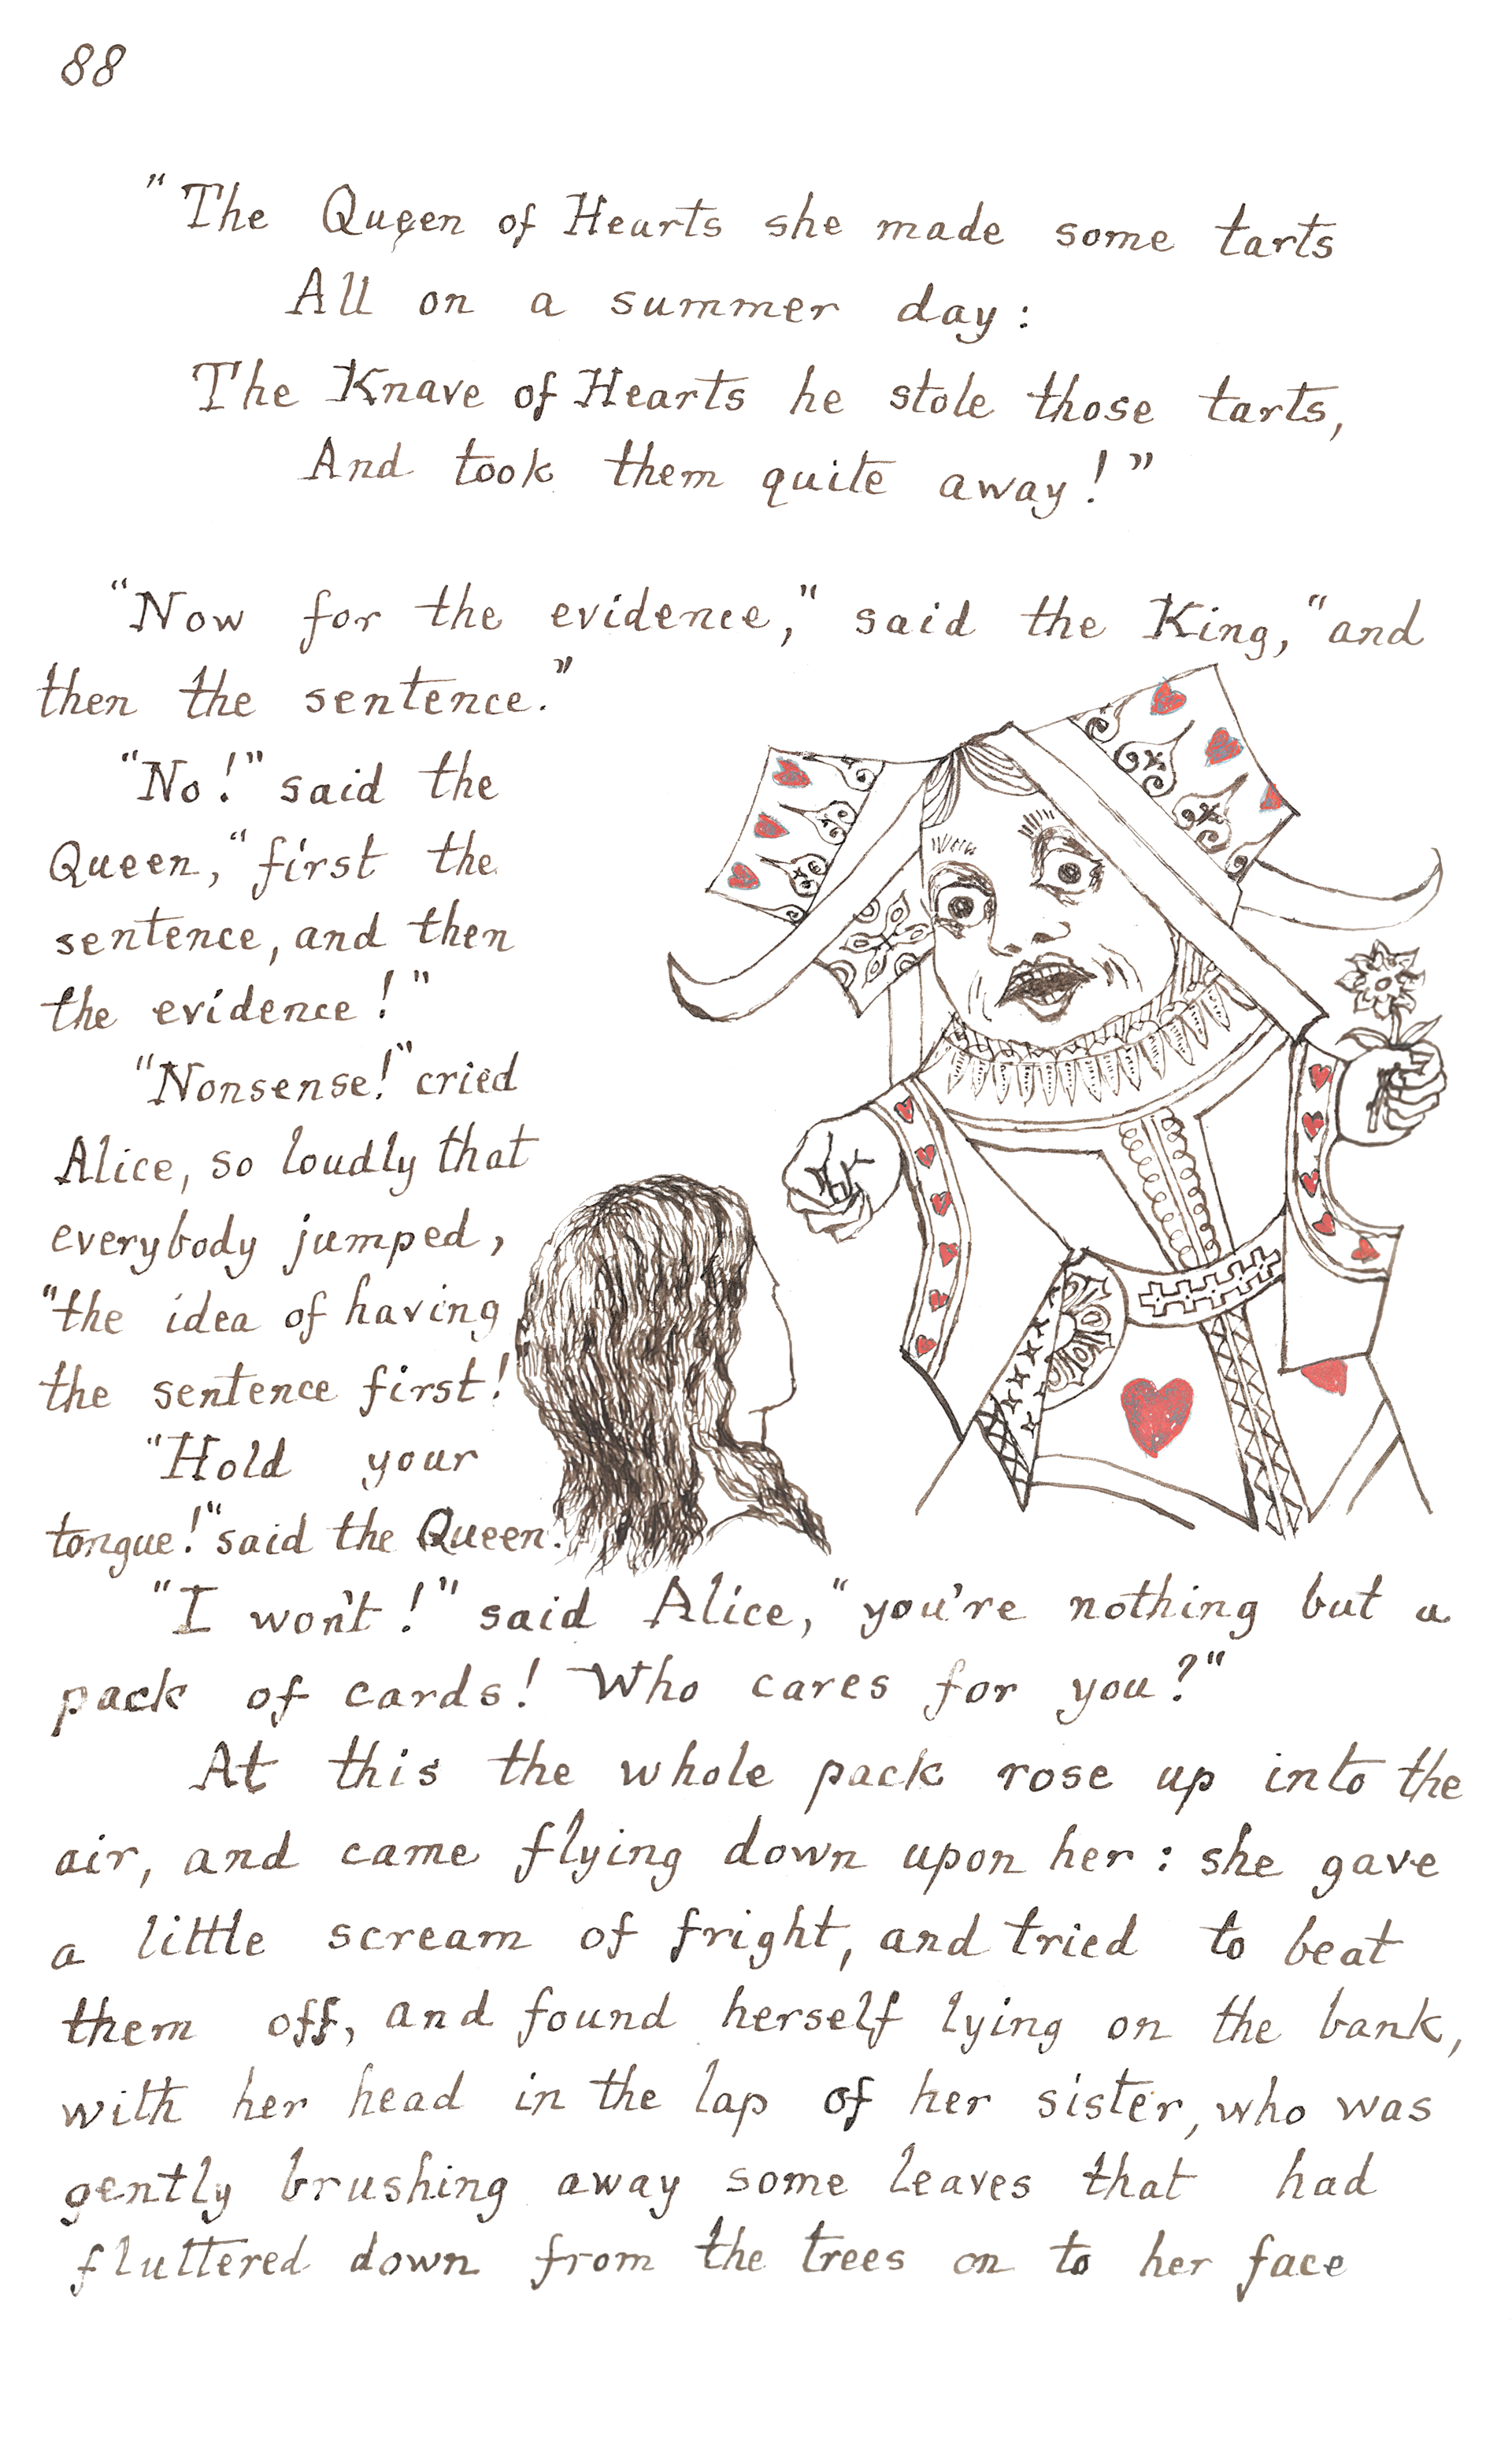 88
"The Queen of Hearts she made some tarts
All on a summer day:
The Knave of Hearts he stole those tarts,
And took them quite away!"
"Now for the evidence," said the King, "and
then the sentence."
"No!" said the
Queen, "first the
sentence, and then
the evidence!"
"Nonsense!" cried
Alice, so loudly that
everybody jumped,
"the idea of having
the sentence first!"
"Hold your
tongue!" said the Queen.
"I won't!" said Alice, "you're nothing but a
pack of cards! Who cares for you?"
At this the whole pack rose up into the
air, and came flying down upon her: she gave
a little scream of fright, and tried to beat
them off, and found herself lying on the bank,
with her head in the lap of her sister, who was
gently brushing away some leaves that had
fluttered down from the trees on to her face